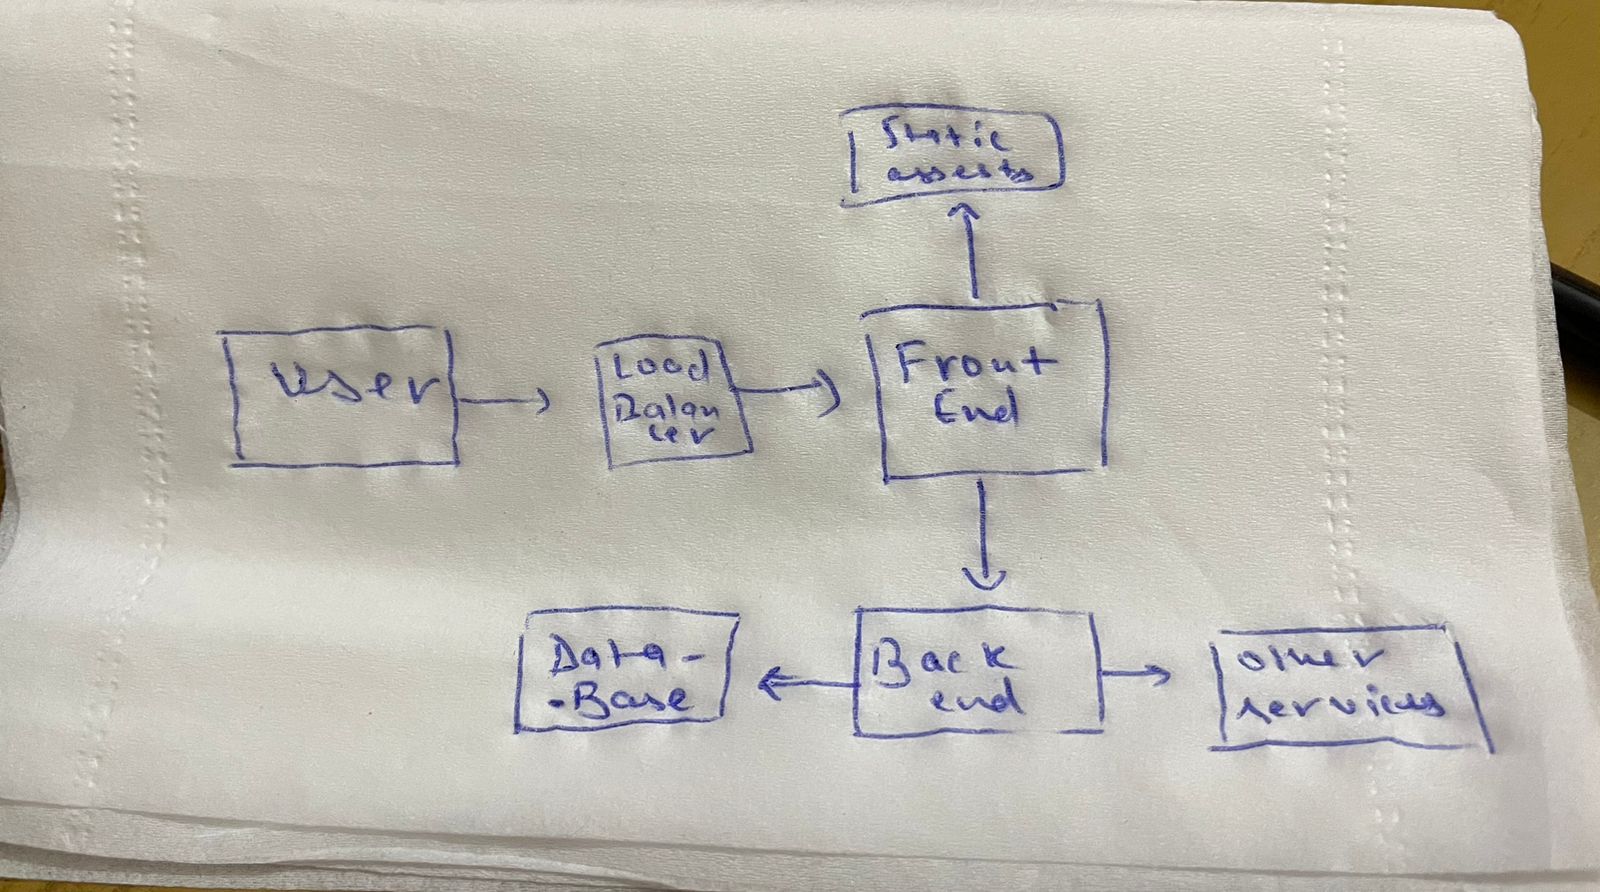 Static
assests
User
Load
Balan
cer
Front
End
Data-
-Base
Back
end
other
services